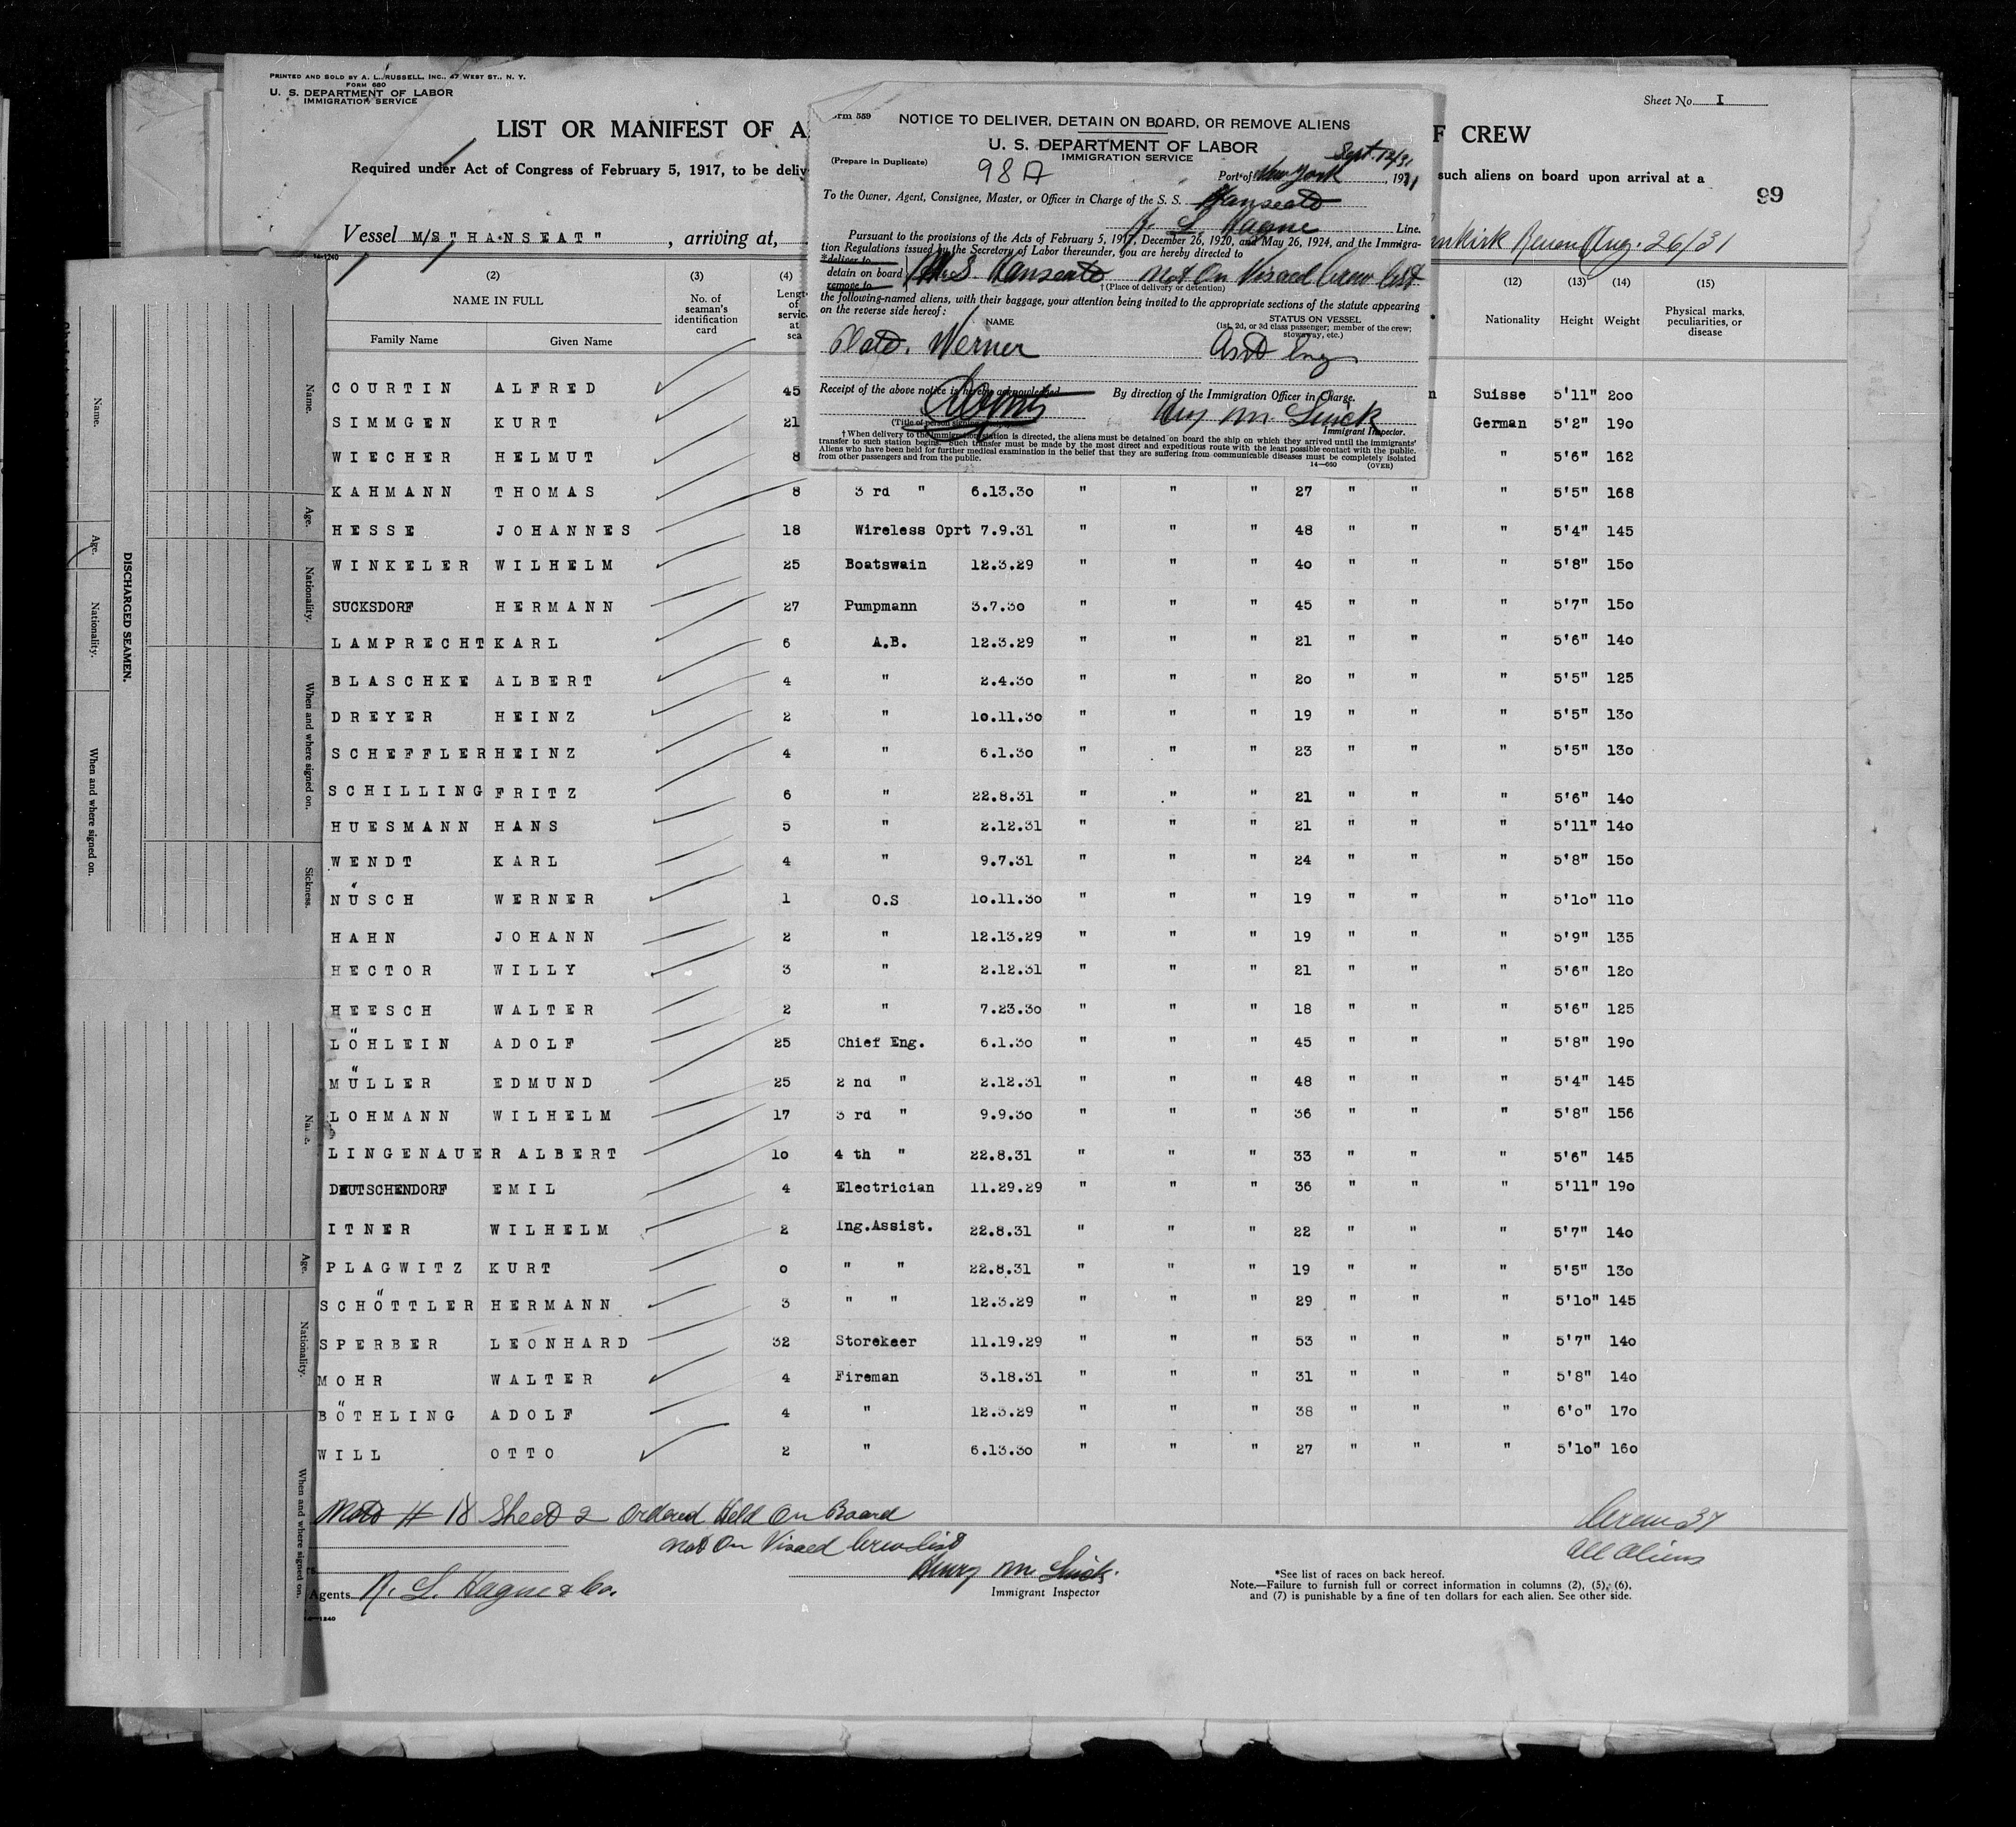 PRINTED AND SOLD BY A. L. RUSSELL, INC., 47 WEST ST., N. Y.
FORM 680
U. S. DEPARTMENT OF LABOR
IMMIGRATION SERVICE
Sheet No. I
LIST OR MANIFEST OF A
F CREW
Required under Act of Congress of February 5, 1917, to be deliv
such aliens on board upon arrival at a
99
Vessel M/S "HANSEAT", arriving at,
Aug. 26/31
14-1240
Form 559
NOTICE TO DELIVER, DETAIN ON BOARD, OR REMOVE ALIENS
U. S. DEPARTMENT OF LABOR
IMMIGRATION SERVICE
(Prepare in Duplicate)
98A
Sept. 12/31
Port of New York, 1931
To the Owner, Agent, Consignee, Master, or Officer in Charge of the S. S. Hanseat
R. L. Hague Line.
Pursuant to the provisions of the Acts of February 5, 1917, December 26, 1920, and May 26, 1924, and the Immigra-
tion Regulations issued by the Secretary of Labor thereunder, you are hereby directed to
*deliver to
detain on board M.S. Hanseat Not On Visaed Crew List
remove to
†(Place of delivery or detention)
the following-named aliens, with their baggage, your attention being invited to the appropriate sections of the statute appearing
on the reverse side hereof:
NAME STATUS ON VESSEL
(1st, 2d, or 3d class passenger; member of the crew;
stowaway, etc.)
Werner Asst Eng
Receipt of the above notice is hereby acknowledged
By direction of the Immigration Officer in Charge.
Immigrant Inspector.
(Title of person
†When delivery to the immigration station is directed, the aliens must be detained on board the ship on which they arrived until the immigrants'
transfer to such station begins. Such transfer must be made by the most direct and expeditious route with the least possible contact with the public.
Aliens who have been held for further medical examination in the belief that they are suffering from communicable diseases must be completely isolated
from other passengers and from the public.
14—660 (OVER)
(2) (3) (4) (12) (13) (14) (15)
NAME IN FULL
Family Name Given Name
No. of seaman's identification card
Length of service at sea
Nationality Height Weight
Physical marks, peculiarities, or disease
COURTIN ALFRED 45 Suisse 5'11" 200
SIMMGEN KURT 21 German 5'2" 190
WIECHER HELMUT 8 " 5'6" 162
KAHMANN THOMAS 8 3 rd " 6.13.30 " " " 27 " " " 5'5" 168
HESSE JOHANNES 18 Wireless Oprt 7.9.31 " " " 48 " " " 5'4" 145
WINKELER WILHELM 25 Boatswain 12.3.29 " " " 40 " " " 5'8" 150
SUCKSDORF HERMANN 27 Pumpmann 3.7.30 " " " 45 " " " 5'7" 150
LAMPRECHT KARL 6 A.B. 12.3.29 " " " 21 " " " 5'6" 140
BLASCHKE ALBERT 4 " 2.4.30 " " " 20 " " " 5'5" 125
DREYER HEINZ 2 " 10.11.30 " " " 19 " " " 5'5" 130
SCHEFFLER HEINZ 4 " 6.1.30 " " " 23 " " " 5'5" 130
SCHILLING FRITZ 6 " 22.8.31 " " " 21 " " " 5'6" 140
HUESMANN HANS 5 " 2.12.31 " " " 21 " " " 5'11" 140
WENDT KARL 4 " 9.7.31 " " " 24 " " " 5'8" 150
NÜSCH WERNER 1 O.S 10.11.30 " " " 19 " " " 5'10" 110
HAHN JOHANN 2 " 12.13.29 " " " 19 " " " 5'9" 135
HECTOR WILLY 3 " 2.12.31 " " " 21 " " " 5'6" 120
HEESCH WALTER 2 " 7.23.30 " " " 18 " " " 5'6" 125
LÖHLEIN ADOLF 25 Chief Eng. 6.1.30 " " " 45 " " " 5'8" 190
MÜLLER EDMUND 25 2 nd " 2.12.31 " " " 48 " " " 5'4" 145
LOHMANN WILHELM 17 3 rd " 9.9.30 " " " 36 " " " 5'8" 156
LINGENAUER ALBERT 10 4 th " 22.8.31 " " " 33 " " " 5'6" 145
DEUTSCHENDORF EMIL 4 Electrician 11.29.29 " " " 36 " " " 5'11" 190
ITNER WILHELM 2 Ing.Assist. 22.8.31 " " " 22 " " " 5'7" 140
PLAGWITZ KURT 0 " " 22.8.31 " " " 19 " " " 5'5" 130
SCHÖTTLER HERMANN 3 " " 12.3.29 " " " 29 " " " 5'10" 145
SPERBER LEONHARD 32 Storekeer 11.19.29 " " " 53 " " " 5'7" 140
MOHR WALTER 4 Fireman 3.18.31 " " " 31 " " " 5'8" 140
BÖTHLING ADOLF 4 " 12.3.29 " " " 38 " " " 6'0" 170
WILL OTTO 2 " 6.13.30 " " " 27 " " " 5'10" 160
# 18 Sheet 2 Ordered Held On Board
Not On Visaed Crew list
Crew 37
All Aliens
Henry M.
Immigrant Inspector
Agents R. L. Hague & Co.
*See list of races on back hereof.
Note.—Failure to furnish full or correct information in columns (2), (5), (6),
and (7) is punishable by a fine of ten dollars for each alien. See other side.
14—1240
DISCHARGED SEAMEN.
Name. Age. Nationality. When and where signed on.
Name. Age. Nationality. When and where signed on. Sickness.
Name. Age. Nationality. When and where signed on.